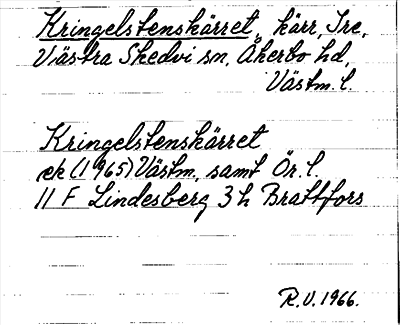 Kringelstenskärret, kärr, Tre,
Västra Skedvi sn, Åkerbo hd,
Västm. l.
Kringelstenskärret
ek (1965) Västm. samt Ör. l.
11 F Lindesberg 3 h Brattfors
R.V. 1966.